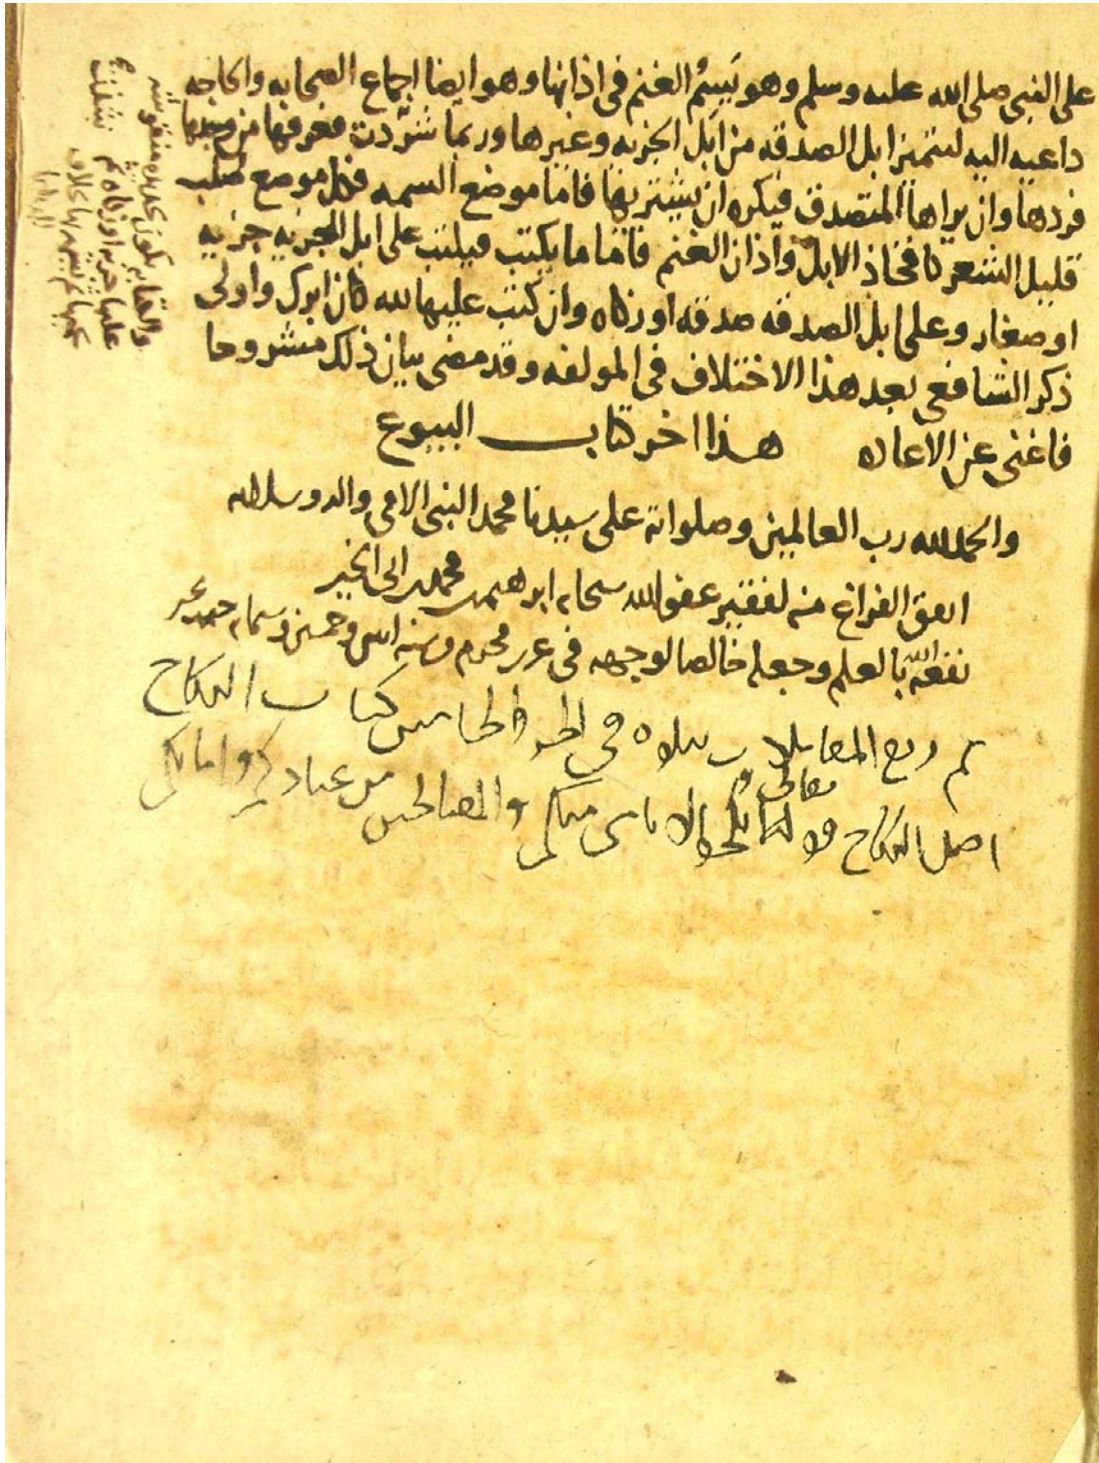 على النبي صلى الله عليه وسلم وهو يَسِمُ الغنم في اذانها وهو ايضا اجماع الصحابه والحاجه
داعيه اليه لتتميز ابل الصدقه من ابل الجزيه وغيرها وربما شرّدت فعرفها من وجدها
فردها وان يراها المتصدق فيكره ان يشتريها فاما موضع السمه فكل موضع صلب
قليل الشعر كافخاذ الابل واذان الغنم فاما ما يكتب فيكتب على ابل الجزيه جزيه
او صغار وعلى ابل الصدقه صدقه او زكاه وان كتب عليها لله كان ابرك واولى
ذكر الشافعي بعد هذا الاختلاف في المولفه وقد مضى بيان ذلك مشروحا
فاغنى عن الاعاده هذا اخر كتاب البيوع
والحمد لله رب العالمين وصلواته على سيدنا محمد النبي الامي واله وسلامه
اتفق الفراغ منه لفقير عفو الله سبحانه ابرهيم بن محمد بن ابي الخير
نفعه الله بالعلم وجعله خالصا لوجهه في محرم سنه وخمسين وستمايه
تم ربع المعاملات يتلوه في الجزء الخامس كتاب النكاح
اصل النكاح قوله تعالى وانكحوا الايامى منكم والصالحين من عبادكم وامايكم
حديده منقوشه
عليها جزيه او زكاه ثم